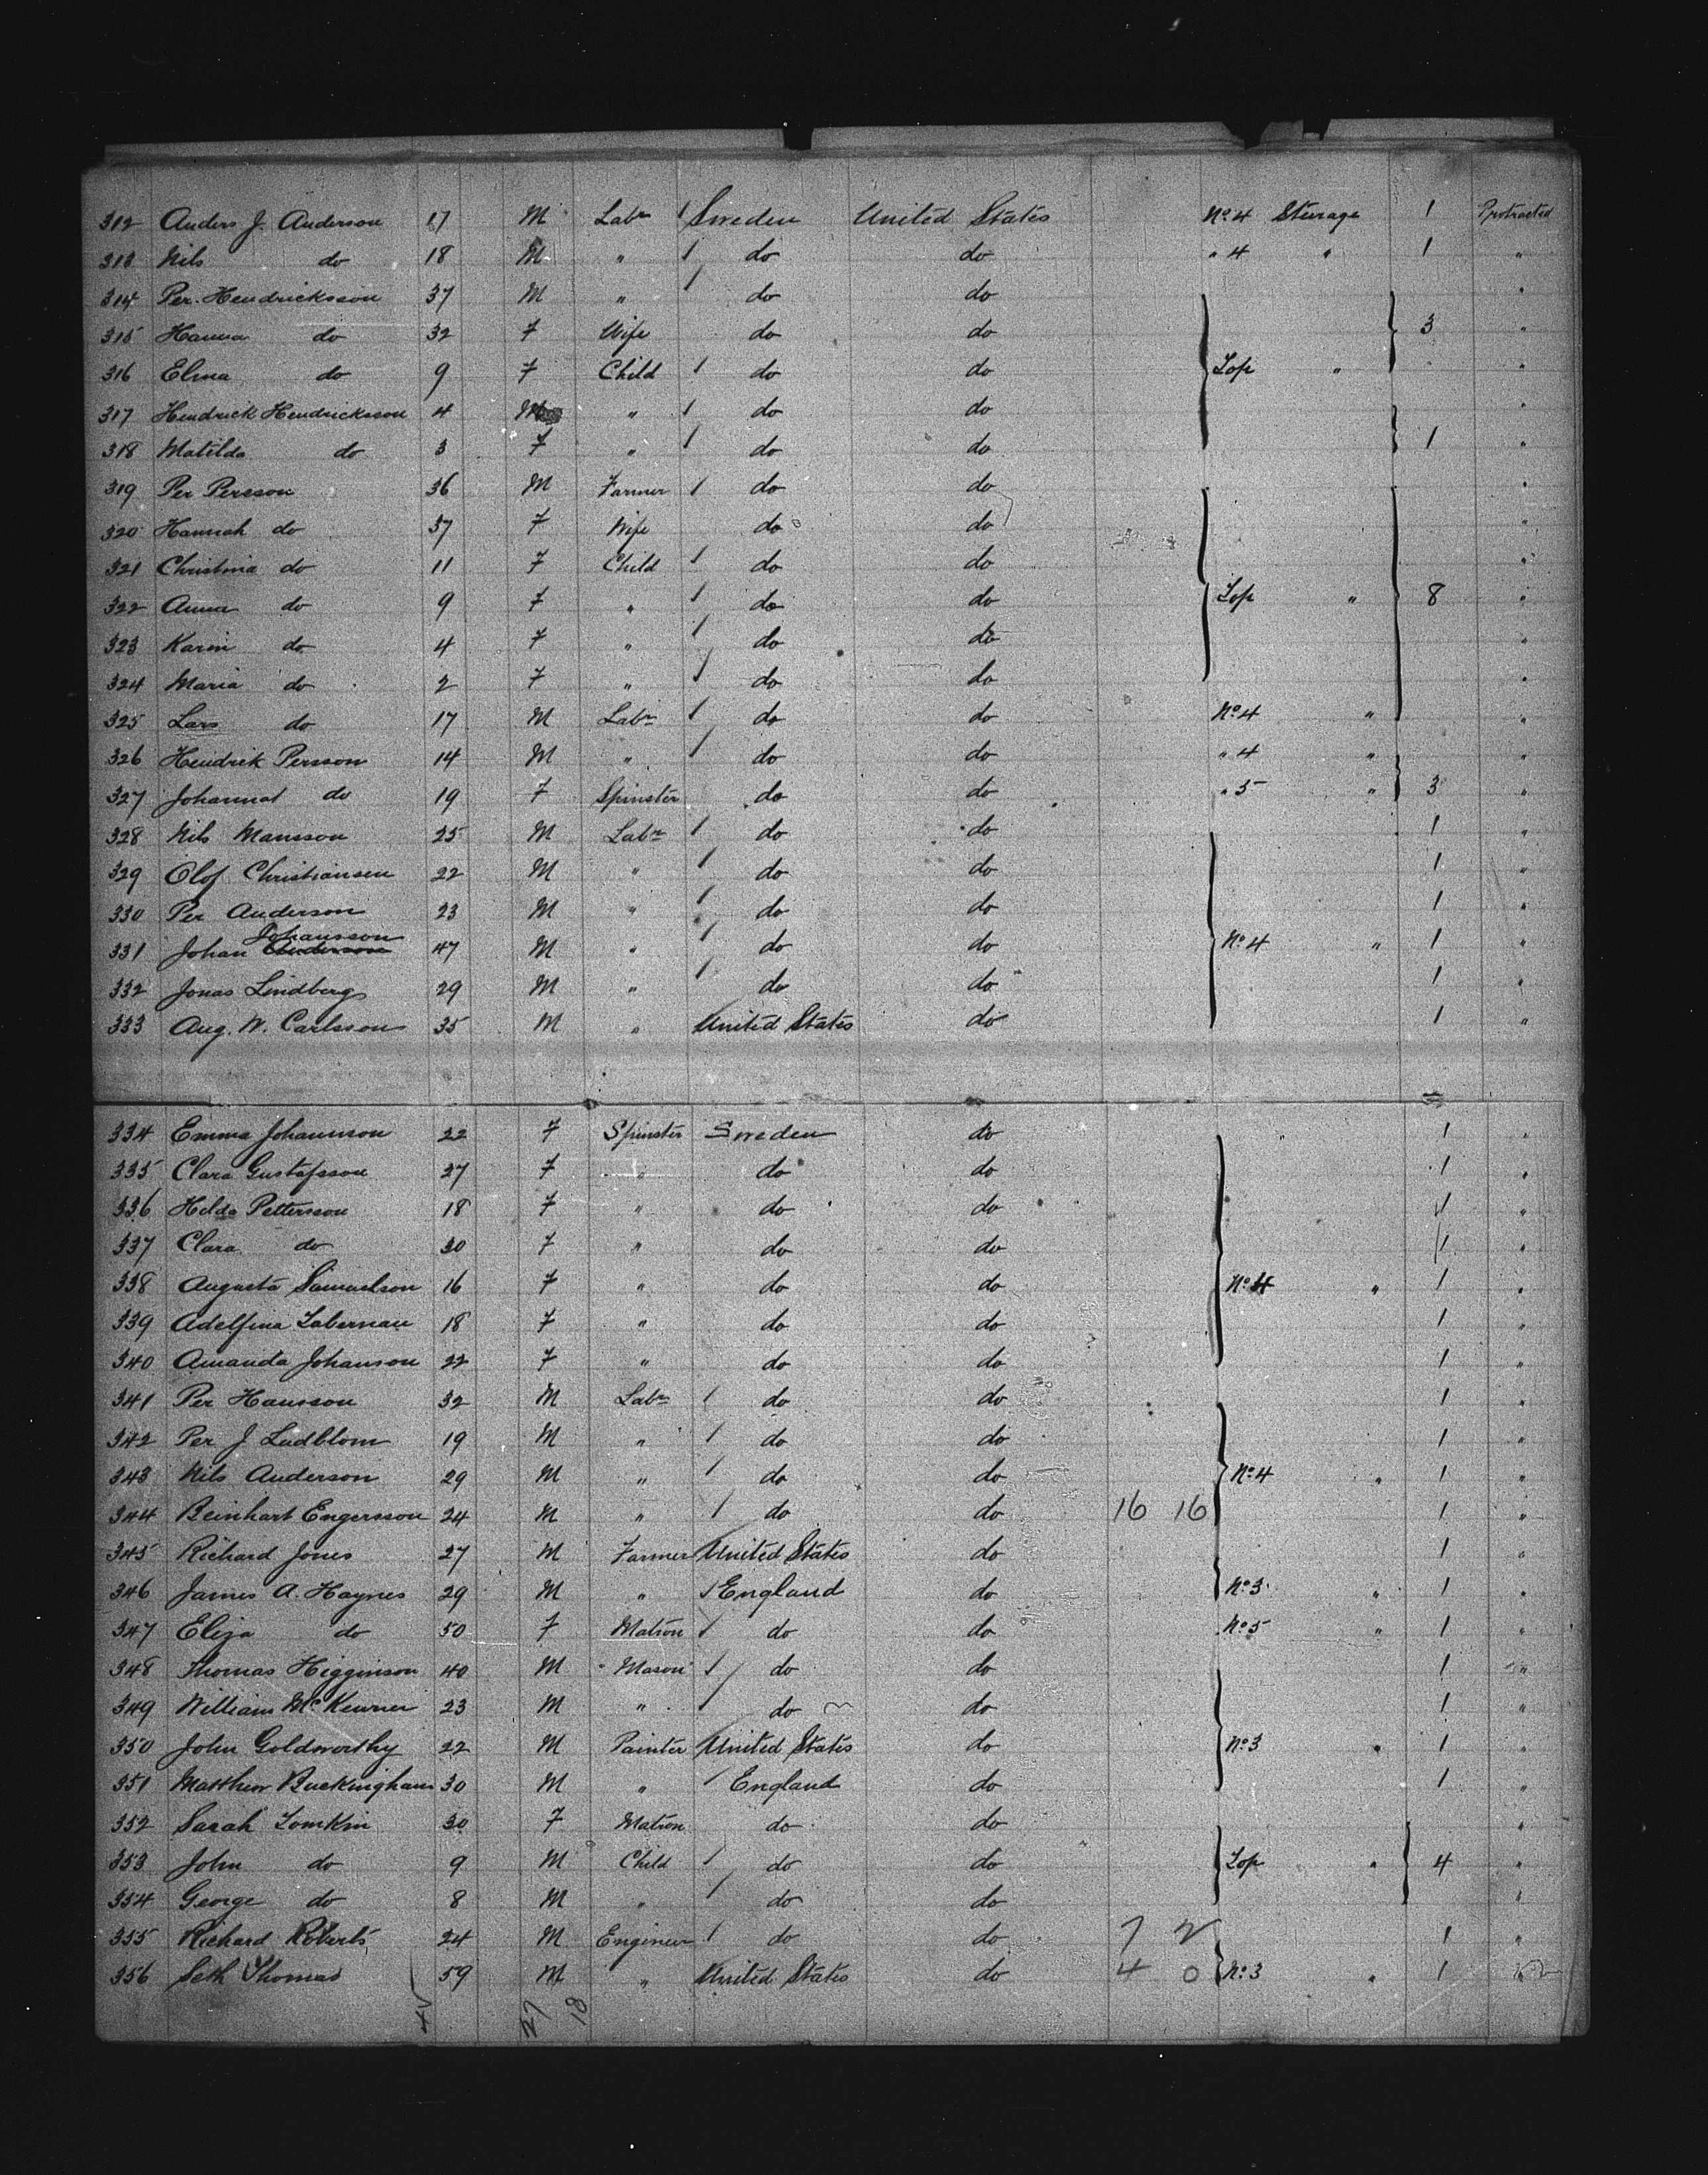 312 Anders J. Anderson 17 M Labr 1 Sweden United States No. 4 Steerage 1 Protracted
313 Nils do 18 M " 1 do do " 4 " 1 "
314 Per Hendricksson 37 M " 1 do do "
315 Hanna do 32 F Wife do do 3 "
316 Elma do 9 F Child 1 do do Top " "
317 Hendrick Hendricksson 4 M " 1 do do "
318 Matilda do 3 F " 1 do do 1 "
319 Per Persson 36 M Farmer 1 do do "
320 Hannah do 37 F Wife do do "
321 Christina do 11 F Child 1 do do "
322 Anna do 9 F " 1 do do Top " 8 "
323 Karin do 4 F " 1 do do "
324 Maria do 2 F " 1 do do "
325 Lars do 17 M Labr 1 do do No. 4 " "
326 Hendrik Persson 14 M " 1 do do " 4 " "
327 Johannat do 19 F Spinster do do " 5 " 3 "
328 Nils Mansson 25 M Labr 1 do do 1 "
329 Olof Christiansen 22 M " 1 do do 1 "
330 Per Anderson 23 M " 1 do do 1 "
331 Johan Anderson Johansson 47 M " 1 do do No. 4 " 1 "
332 Jonas Lindberg 29 M " 1 do do 1 "
333 Aug. W. Carlsson 35 M " United States do 1 "
334 Emma Johannson 22 F Spinster Sweden do 1 "
335 Clara Gustafsson 27 F " do do 1 "
336 Hilda Pettersson 18 F " do do 1 "
337 Clara do 30 F " do do 1 "
338 Augusta Samuelson 16 F " do do No. 4 " 1 "
339 Adelfina Labernau 18 F " do do 1 "
340 Amanda Johanson 22 F " do do 1 "
341 Per Hansson 32 M Labr 1 do do 1 "
342 Per J Ladblom 19 M " 1 do do 1 "
343 Nils Anderson 29 M " 1 do do No. 4 " 1 "
344 Reinhart Engersson 24 M " 1 do do 16 16 1 "
345 Richard Jones 27 M Farmer United States do 1 "
346 James A. Haynes 29 M " 1 England do No. 3 " 1 "
347 Eliza do 50 F Matron 1 do do No. 5 " 1 "
348 Thomas Higginson 40 M Mason 1 do do 1 "
349 William McKewner 23 M " 1 do do 1 "
350 John Goldsworthy 22 M Painter United States do No. 3 " 1 "
351 Matthew Buckingham 30 M " 1 England do 1 "
352 Sarah Tomkin 30 F Matron do do "
353 John do 9 M Child 1 do do Top " 4 "
354 George do 8 M " 1 do do "
355 Richard Roberts 24 M Engineer 1 do do 7 2 1 "
356 Seth Thomas 59 M " United States do 4 0 No. 3 " 1 "
27 18